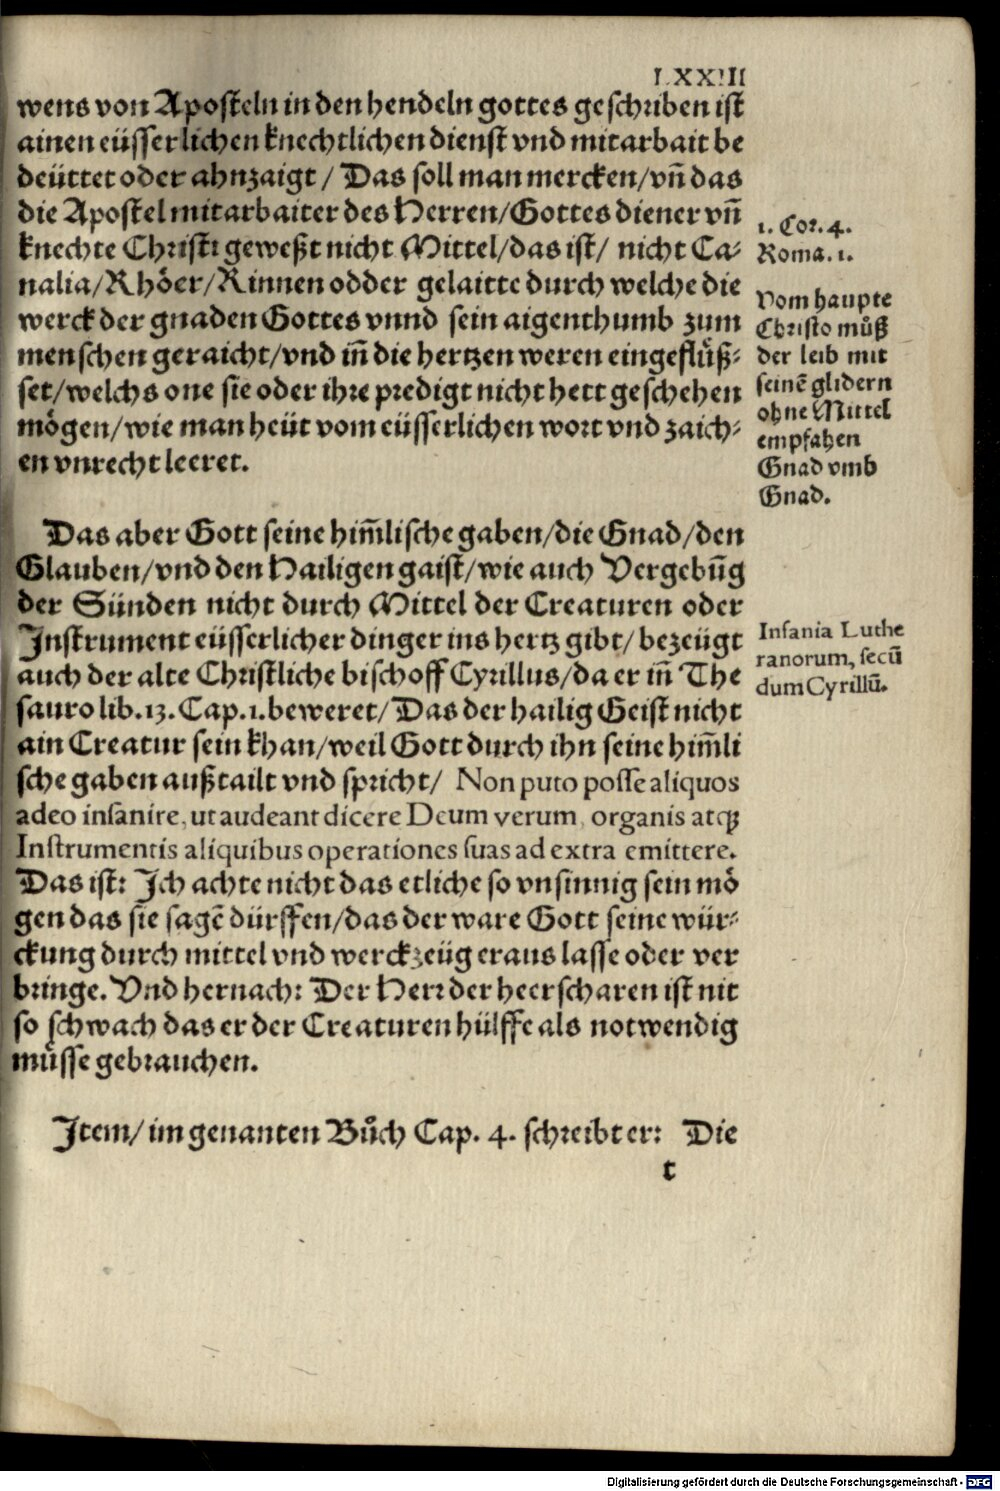 LXXIII
wens von Aposteln in den hendeln gottes geschriben ist
ainen eüsserlichen knechtlichen dienst vnd mitarbait be
deüttet oder ahnzaigt / Das soll man mercken/vñ das
die Apostel mitarbaiter des Herren/Gottes diener vñ
knechte Christi geweßt nicht Mittel/das ist/ nicht Ca⸗
nalia/Rhöer/Rinnen odder gelaitte durch welche die
werck der gnaden Gottes vnnd sein aigenthumb zum
menschen geraicht/vnd iñ die hertzen weren eingeflüß⸗
set/welchs one sie oder ihre predigt nicht hett geschehen
mögen/wie man heüt vom eüsserlichen wort vnd zaich⸗
en vnrecht leeret.
1. Cor. 4.
Roma. 1.
Vom haupte
Christo muͦß
der leib mit
seinē glidern
ohne Mittel
empfahen
Gnad vmb
Gnad.
Das aber Gott seine him̃lische gaben/die Gnad/den
Glauben/vnd den Hailigen gaist/wie auch Vergebūg
der Sünden nicht durch Mittel der Creaturen oder
Instrument eüsserlicher dinger ins hertz gibt/ bezeügt
auch der alte Christliche bischoff Cyrillus/da er iñ The
sauro lib. 13. Cap. 1. beweret/Das der hailig Geist nicht
ain Creatur sein khan/weil Gott durch ihn seine him̃li
sche gaben außtailt vnd spricht/ Non puto posse aliquos
adeo insanire, ut audeant dicere Deum verum, organis atqꝫ
Instrumentis aliquibus operationes suas ad extra emittere.
Das ist: Ich achte nicht das etliche so vnsinnig sein mö
gen das sie sagē dürffen/das der ware Gott seine wür⸗
ckung durch mittel vnd werckzeüg eraus lasse oder ver
bringe. Vnd hernach: Der Herr der heerscharen ist nit
so schwach das er der Creaturen hülffe als notwendig
müsse gebrauchen.
Insania Luthe
ranorum, secū
dum Cyrillū.
Item/ im genanten Buͦch Cap. 4. schreibt er: Die
t
Digitalisierung gefördert durch die Deutsche Forschungsgemeinschaft - DFG